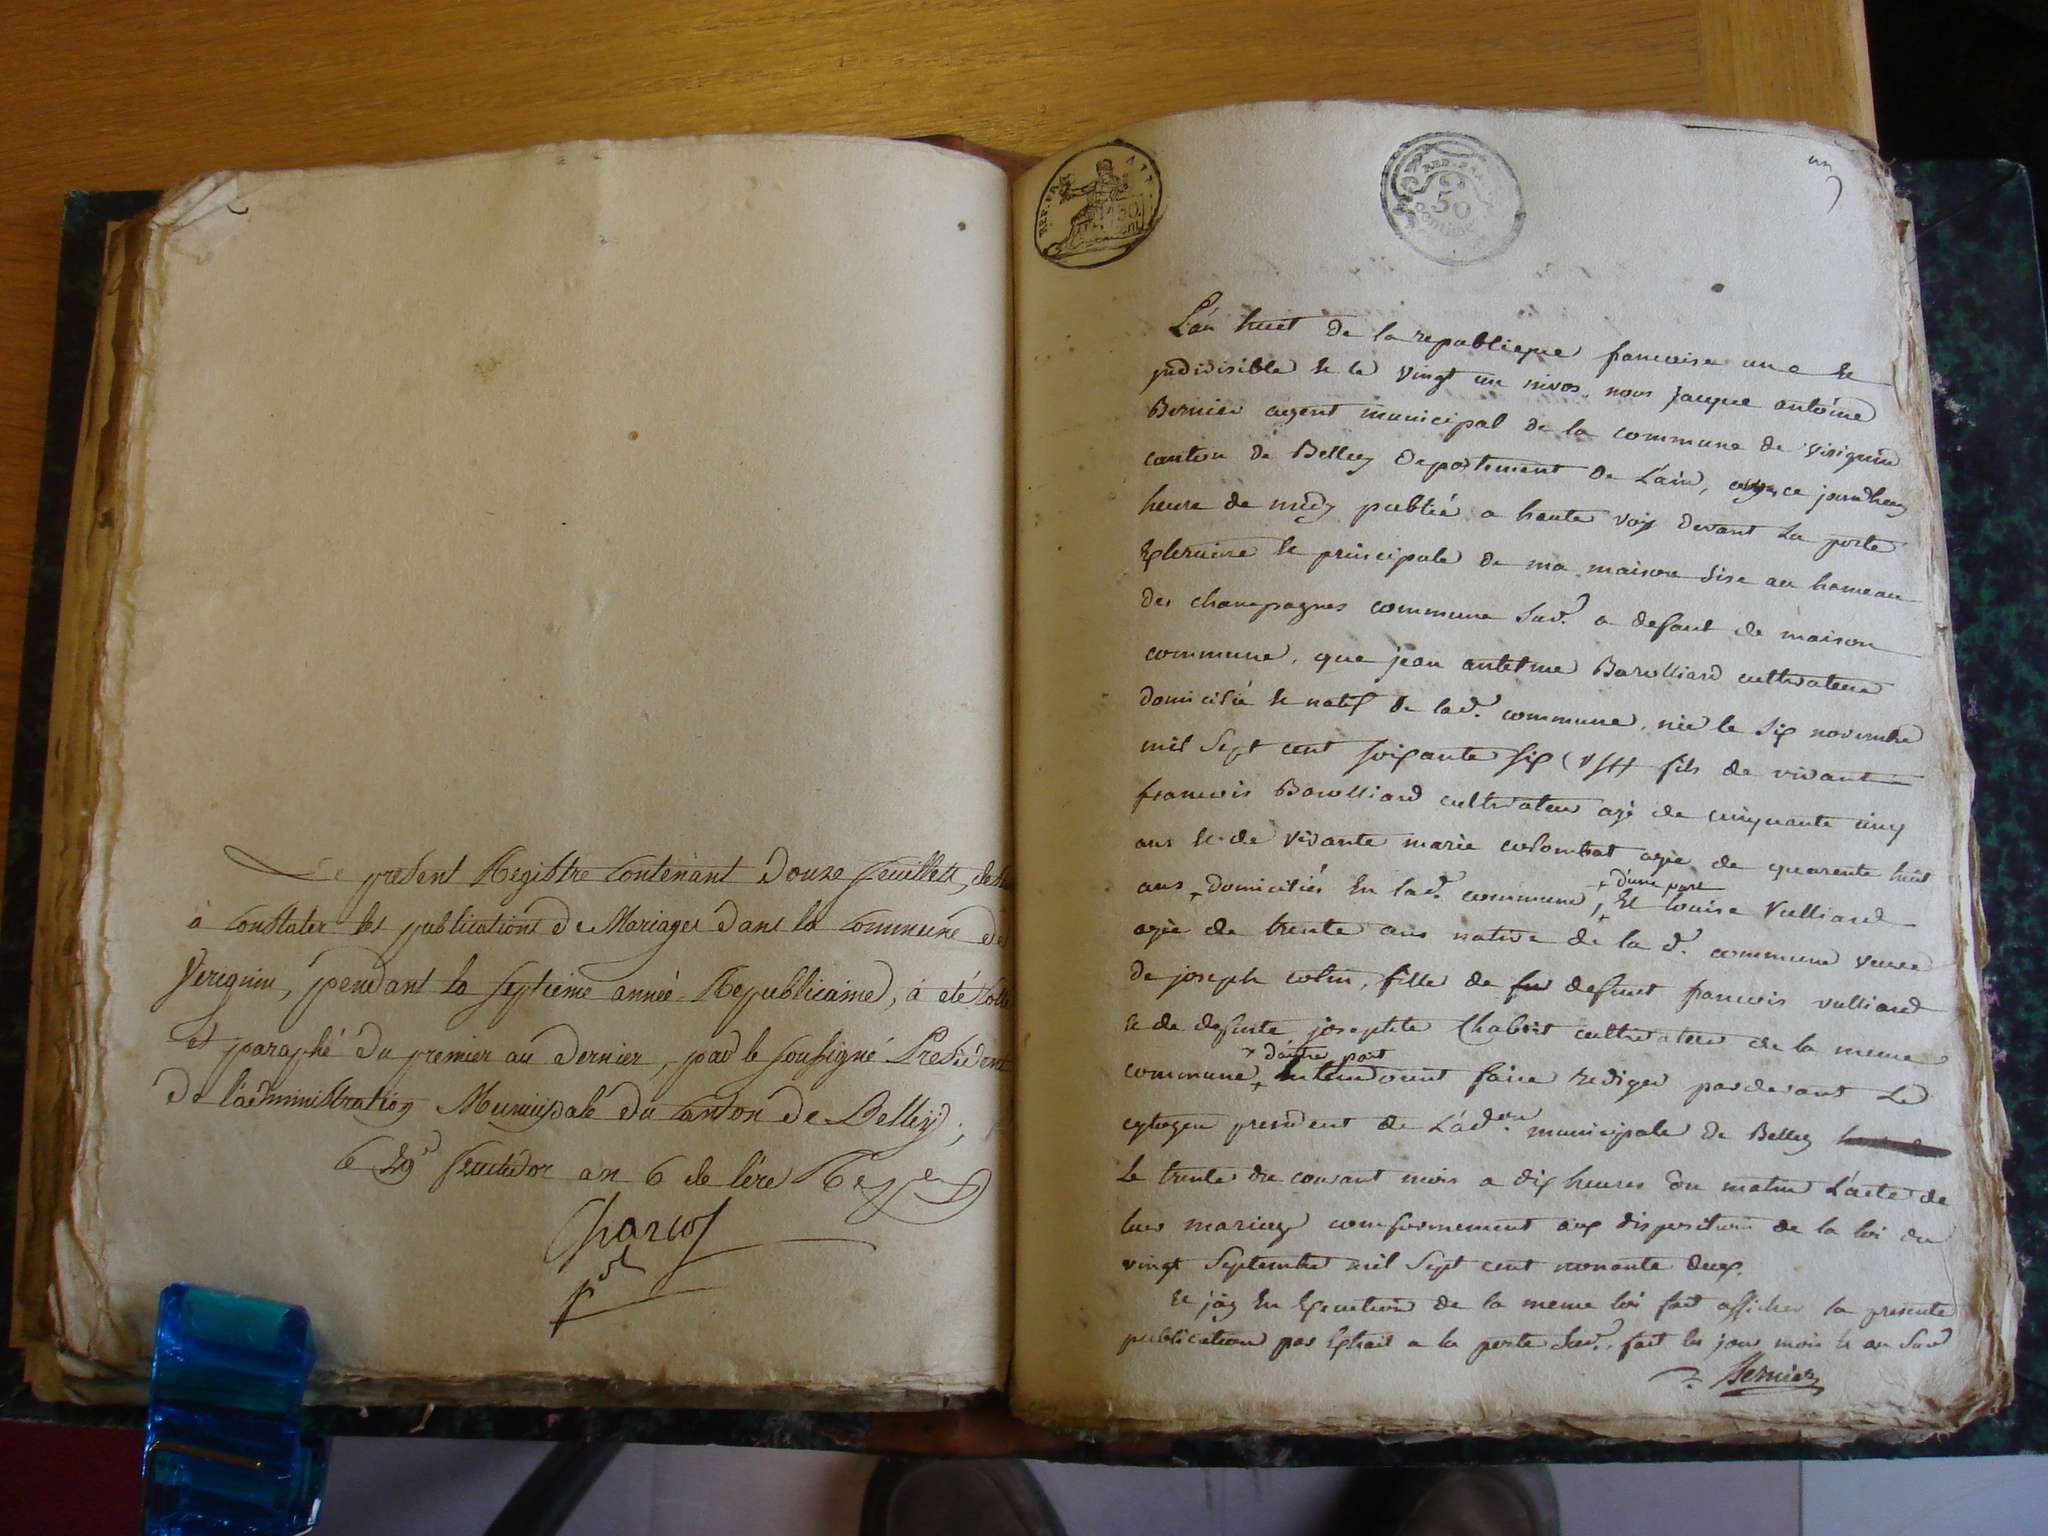 Le present Registre Contenant Douze feuillets,
à Constater les publications de Mariages dans la Commune de
Verignin, pendant la septieme année Republicaine, à eté
et paraphé du premier au dernier, par le soussigné President
De l'administration Municipale du Canton de Belley;
le 29e fructidor an 6 de l'ère
Charcot
pdt
REP. FRA.
50
L'an huit de la republique francoise une et
jndivisible et le vingt un nivos, nous jacque antoine
Bernier agent municipal de la commune de virignin
canton de Belley departement de L'ain, ce jourdhuy
heure de midy publié a haute voix devant La porte
Exterieure et principale de ma maison sise au hameau
des champagnes commune Susd. a defaut de maison
commune, que jean antelme Barolliard cultivateur
domicilié et natif de lad. commune, née le six novembre
mil sept cent soixante six fils de vivant
francois Barolliard cultivateur agé de cinquante cinq
ans et de vivante marie colombat agée de quarente huit
ans, domiciliés En lad. commune, + d'une part
Et Louise Vulliard
agée de trente ans native de la d. commune veuve
de joseph colin, fille de defunt francois vulliard
et de defunte josephte Chaboit cultivateur de la meme
+ d'autre part
commune + Entendoient faire rediger pardevant Le
cytoyen president de L'ad.on municipale de Belley
Le trente du courant mois a dix heures du matin L'acte de
leur mariage conformement aux disposition de la loi du
vingt Septembre mil Sept cent nonante deux.
Et j'ay En Execution de la meme loi fait afficher la presente
publication par Extrait a la porte Susd. fait les jour mois et an Susd
Bernier